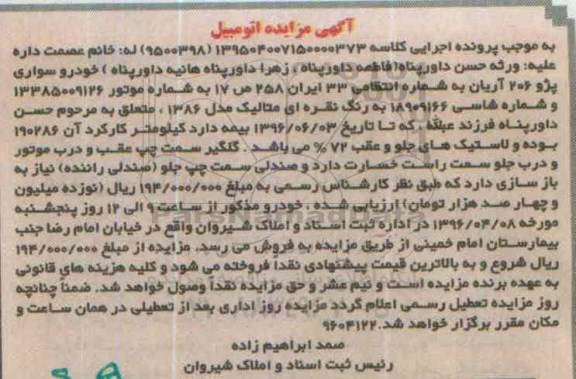 آگهی مزایده اتومبیل
به موجب پرونده اجرایی کلاسه ۱۳۹۵۰۴۰۰۷۱۵۰۰۰۰۳۷۳ (۹۵۰۰۳۹۸) له: خانم عصمت داره
علیه: ورثه حسن داورپناه(فاطمه داورپناه ، زهرا داورپناه هانیه داورپناه ) خودرو سواری
پژو ۲۰۶ آریان به شماره انتظامی ۳۳ ایران ۲۵۸ ص ۱۷ به شماره موتور ۱۳۳۸۵۰۰۹۱۲۶
و شماره شاسی ۱۸۹۰۹۱۶۶ به رنگ نقره ای متالیک مدل ۱۳۸۶ ، متعلق به مرحوم حسن
داورپناه فرزند عبدالله ، که تا تاریخ ۱۳۹۶/۰۶/۰۳ بیمه دارد کیلومتر کارکرد آن ۱۹۰۲۸۶
بوده و لاستیک های جلو و عقب ۷۲ % می باشد . گلگیر سمت چپ عقب و درب موتور
و درب جلو سمت راست خسارت دارد و صندلی سمت چپ جلو (صندلی راننده) نیاز به
باز سازی دارد که طبق نظر کارشناس رسمی به مبلغ ۱۹۴/۰۰۰/۰۰۰ ریال (نوزده میلیون
و چهار صد هزار تومان) ارزیابی شده ، خودرو مذکور از ساعت ۹ الی ۱۲ روز پنجشنبه
مورخه ۱۳۹۶/۰۴/۰۸ در اداره ثبت اسناد و املاک شیروان واقع در خیابان امام رضا جنب
بیمارستان امام خمینی از طریق مزایده به فروش می رسد. مزایده از مبلغ ۱۹۴/۰۰۰/۰۰۰
ریال شروع و به بالاترین قیمت پیشنهادی نقدا فروخته می شود و کلیه هزینه های قانونی
به عهده برنده مزایده است و نیم عشر و حق مزایده نقدا وصول خواهد شد. ضمنا چنانچه
روز مزایده تعطیل رسمی اعلام گردد مزایده روز اداری بعد از تعطیلی در همان ساعت و
مکان مقرر برگزار خواهد شد.۹۶۰۴۱۲۲
صمد ابراهیم زاده
رئیس ثبت اسناد و املاک شیروان